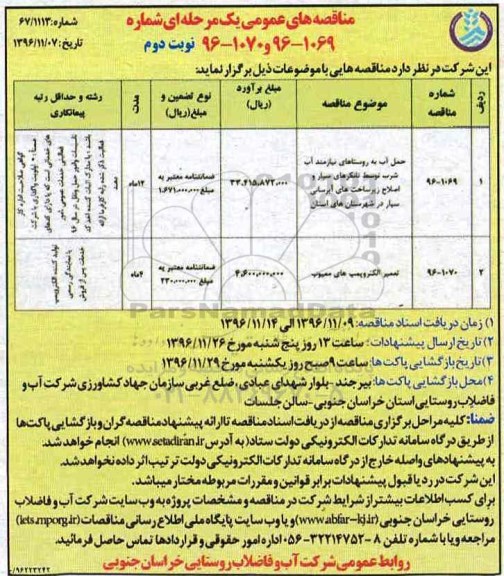 مناقصه های عمومی یک مرحله ای شماره
۹۶-۱۰۶۹ و ۹۶-۱۰۷۰ نوبت دوم
شماره: ۶۷/۱۱۱۳
تاریخ: ۱۳۹۶/۱۱/۰۷
این شرکت در نظر دارد مناقصه هایی با موضوعات ذیل برگزار نماید:
ردیف
شماره مناقصه
موضوع مناقصه
مبلغ برآورد (ریال)
نوع تضمین و مبلغ (ریال)
مدت
رشته و حداقل رتبه پیمانکاری
۱
۹۶-۱۰۶۹
حمل آب به روستاهای نیازمند آب
شرب توسط تانکرهای سیار و
اصلاح زیرساخت های آبرسانی
سیار در شهرستان های استان
۳۳،۴۱۵،۸۷۲،۰۰۰
ضمانتنامه معتبر به
مبلغ ۱،۶۷۱،۰۰۰،۰۰۰
۱۲ماه
۲
۹۶-۱۰۷۰
تعمیر الکتروپمپ های معیوب
۴،۶۰۰،۰۰۰،۰۰۰
ضمانتنامه معتبر به
مبلغ ۲۳۰،۰۰۰،۰۰۰
۴ماه
تولید کننده الکتروپمپ
یا نمایندگی رسمی
خدمات پس از فروش
ParsNamadData
۱) زمان دریافت اسناد مناقصه: ۱۳۹۶/۱۱/۰۹ الی ۱۳۹۶/۱۱/۱۴
۲) تاریخ ارسال پیشنهادات: ساعت ۱۳ روز پنج شنبه مورخ ۱۳۹۶/۱۱/۲۶
۳) تاریخ بازگشایی پاکت ها: ساعت ۹ صبح روز یکشنبه مورخ ۱۳۹۶/۱۱/۲۹
۴) محل بازگشایی پاکت ها: بیرجند-بلوار شهدای عبادی، ضلع غربی سازمان جهاد کشاورزی شرکت آب و
فاضلاب روستایی استان خراسان جنوبی-سالن جلسات
ضمنا: کلیه مراحل برگزاری مناقصه از دریافت اسناد مناقصه تا ارائه پیشنهاد مناقصه گران و بازگشایی پاکت ها
از طریق درگاه سامانه تدارکات الکترونیکی دولت ستاد (به آدرس www.setadiran.ir) انجام خواهد شد.
به پیشنهادهای واصله خارج از درگاه سامانه تدارکات الکترونیکی دولت ترتیب اثر داده نخواهد شد.
این شرکت در رد یا قبول پیشنهادات برابر قوانین و مقررات مربوطه مختار میباشد.
برای کسب اطلاعات بیشتر از شرایط شرکت در مناقصه و مشخصات پروژه به وب سایت شرکت آب و فاضلاب
روستایی خراسان جنوبی (www.abfar-kj.ir) و یا وب سایت پایگاه ملی اطلاع رسانی مناقصات (iets.mporg.ir)
مراجعه و یا با شماره تلفن ۸-۳۲۲۱۴۷۵۲-۰۵۶ اداره امور حقوقی و قراردادها تماس حاصل فرمائید.
روابط عمومی شرکت آب و فاضلاب روستایی خراسان جنوبی
۹۶۲۲۳۲۴۲/